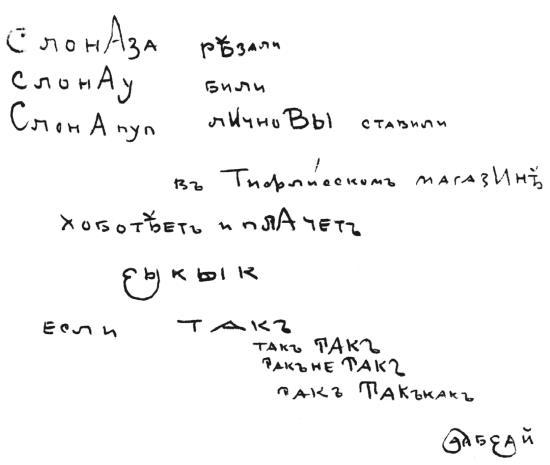 СлонАза рѣзали
слонАу били
СлонА пуп лИчноВЫ ставили
въ Тифлисскомъ магазИнѣ
хоботѣетъ и плАчетъ
сыкык
если такъ
такъ ТАКЪ
такъне ТАКЪ
такъ ТАКъкакъ